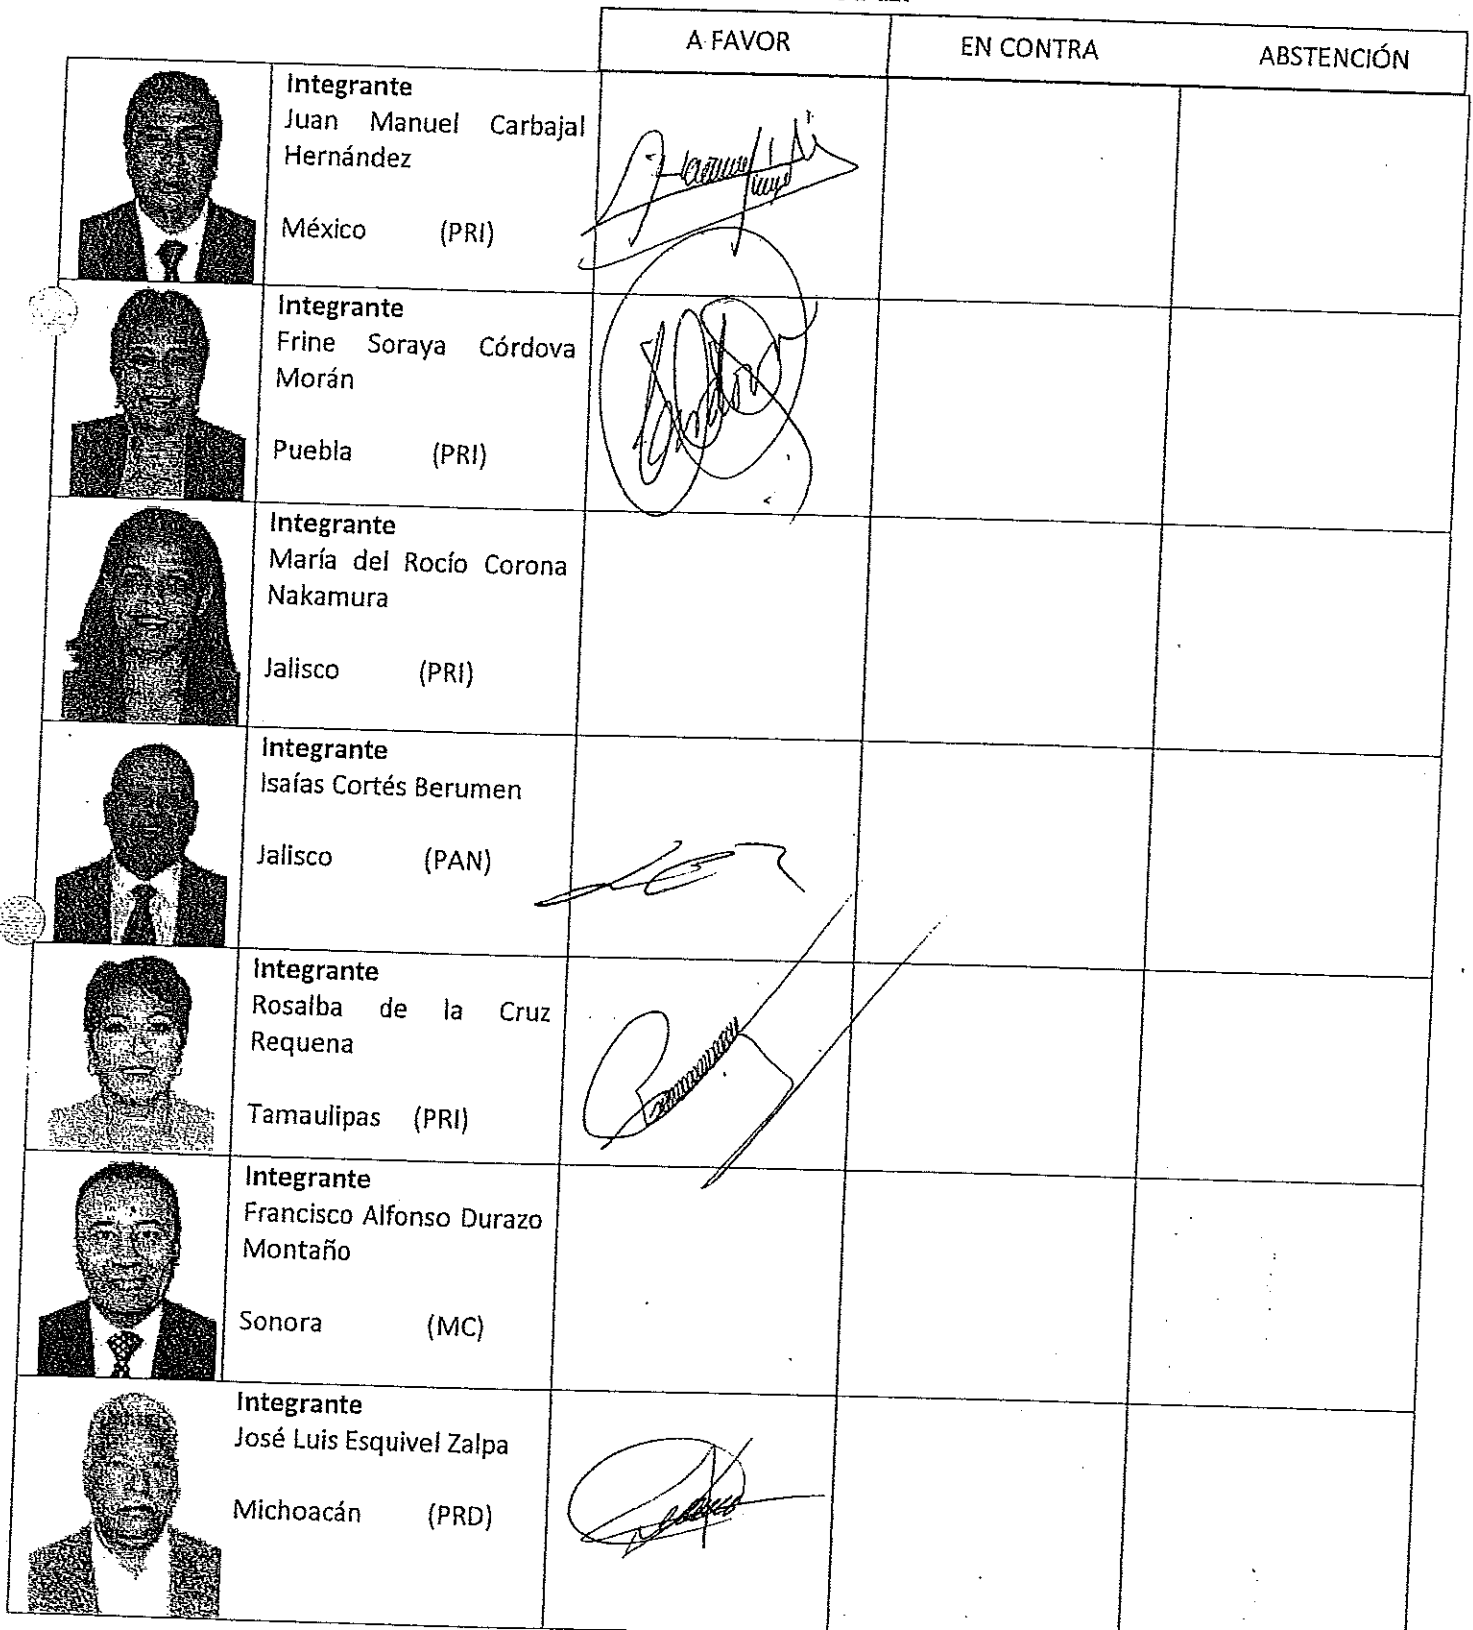 A FAVOR EN CONTRA ABSTENCIÓN
Integrante
Juan Manuel Carbajal
Hernández
México (PRI)
Integrante
Frine Soraya Córdova
Morán
Puebla (PRI)
Integrante
María del Rocío Corona
Nakamura
Jalisco (PRI)
Integrante
Isaías Cortés Berumen
Jalisco (PAN)
Integrante
Rosalba de la Cruz
Requena
Tamaulipas (PRI)
Integrante
Francisco Alfonso Durazo
Montaño
Sonora (MC)
Integrante
José Luis Esquivel Zalpa
Michoacán (PRD)